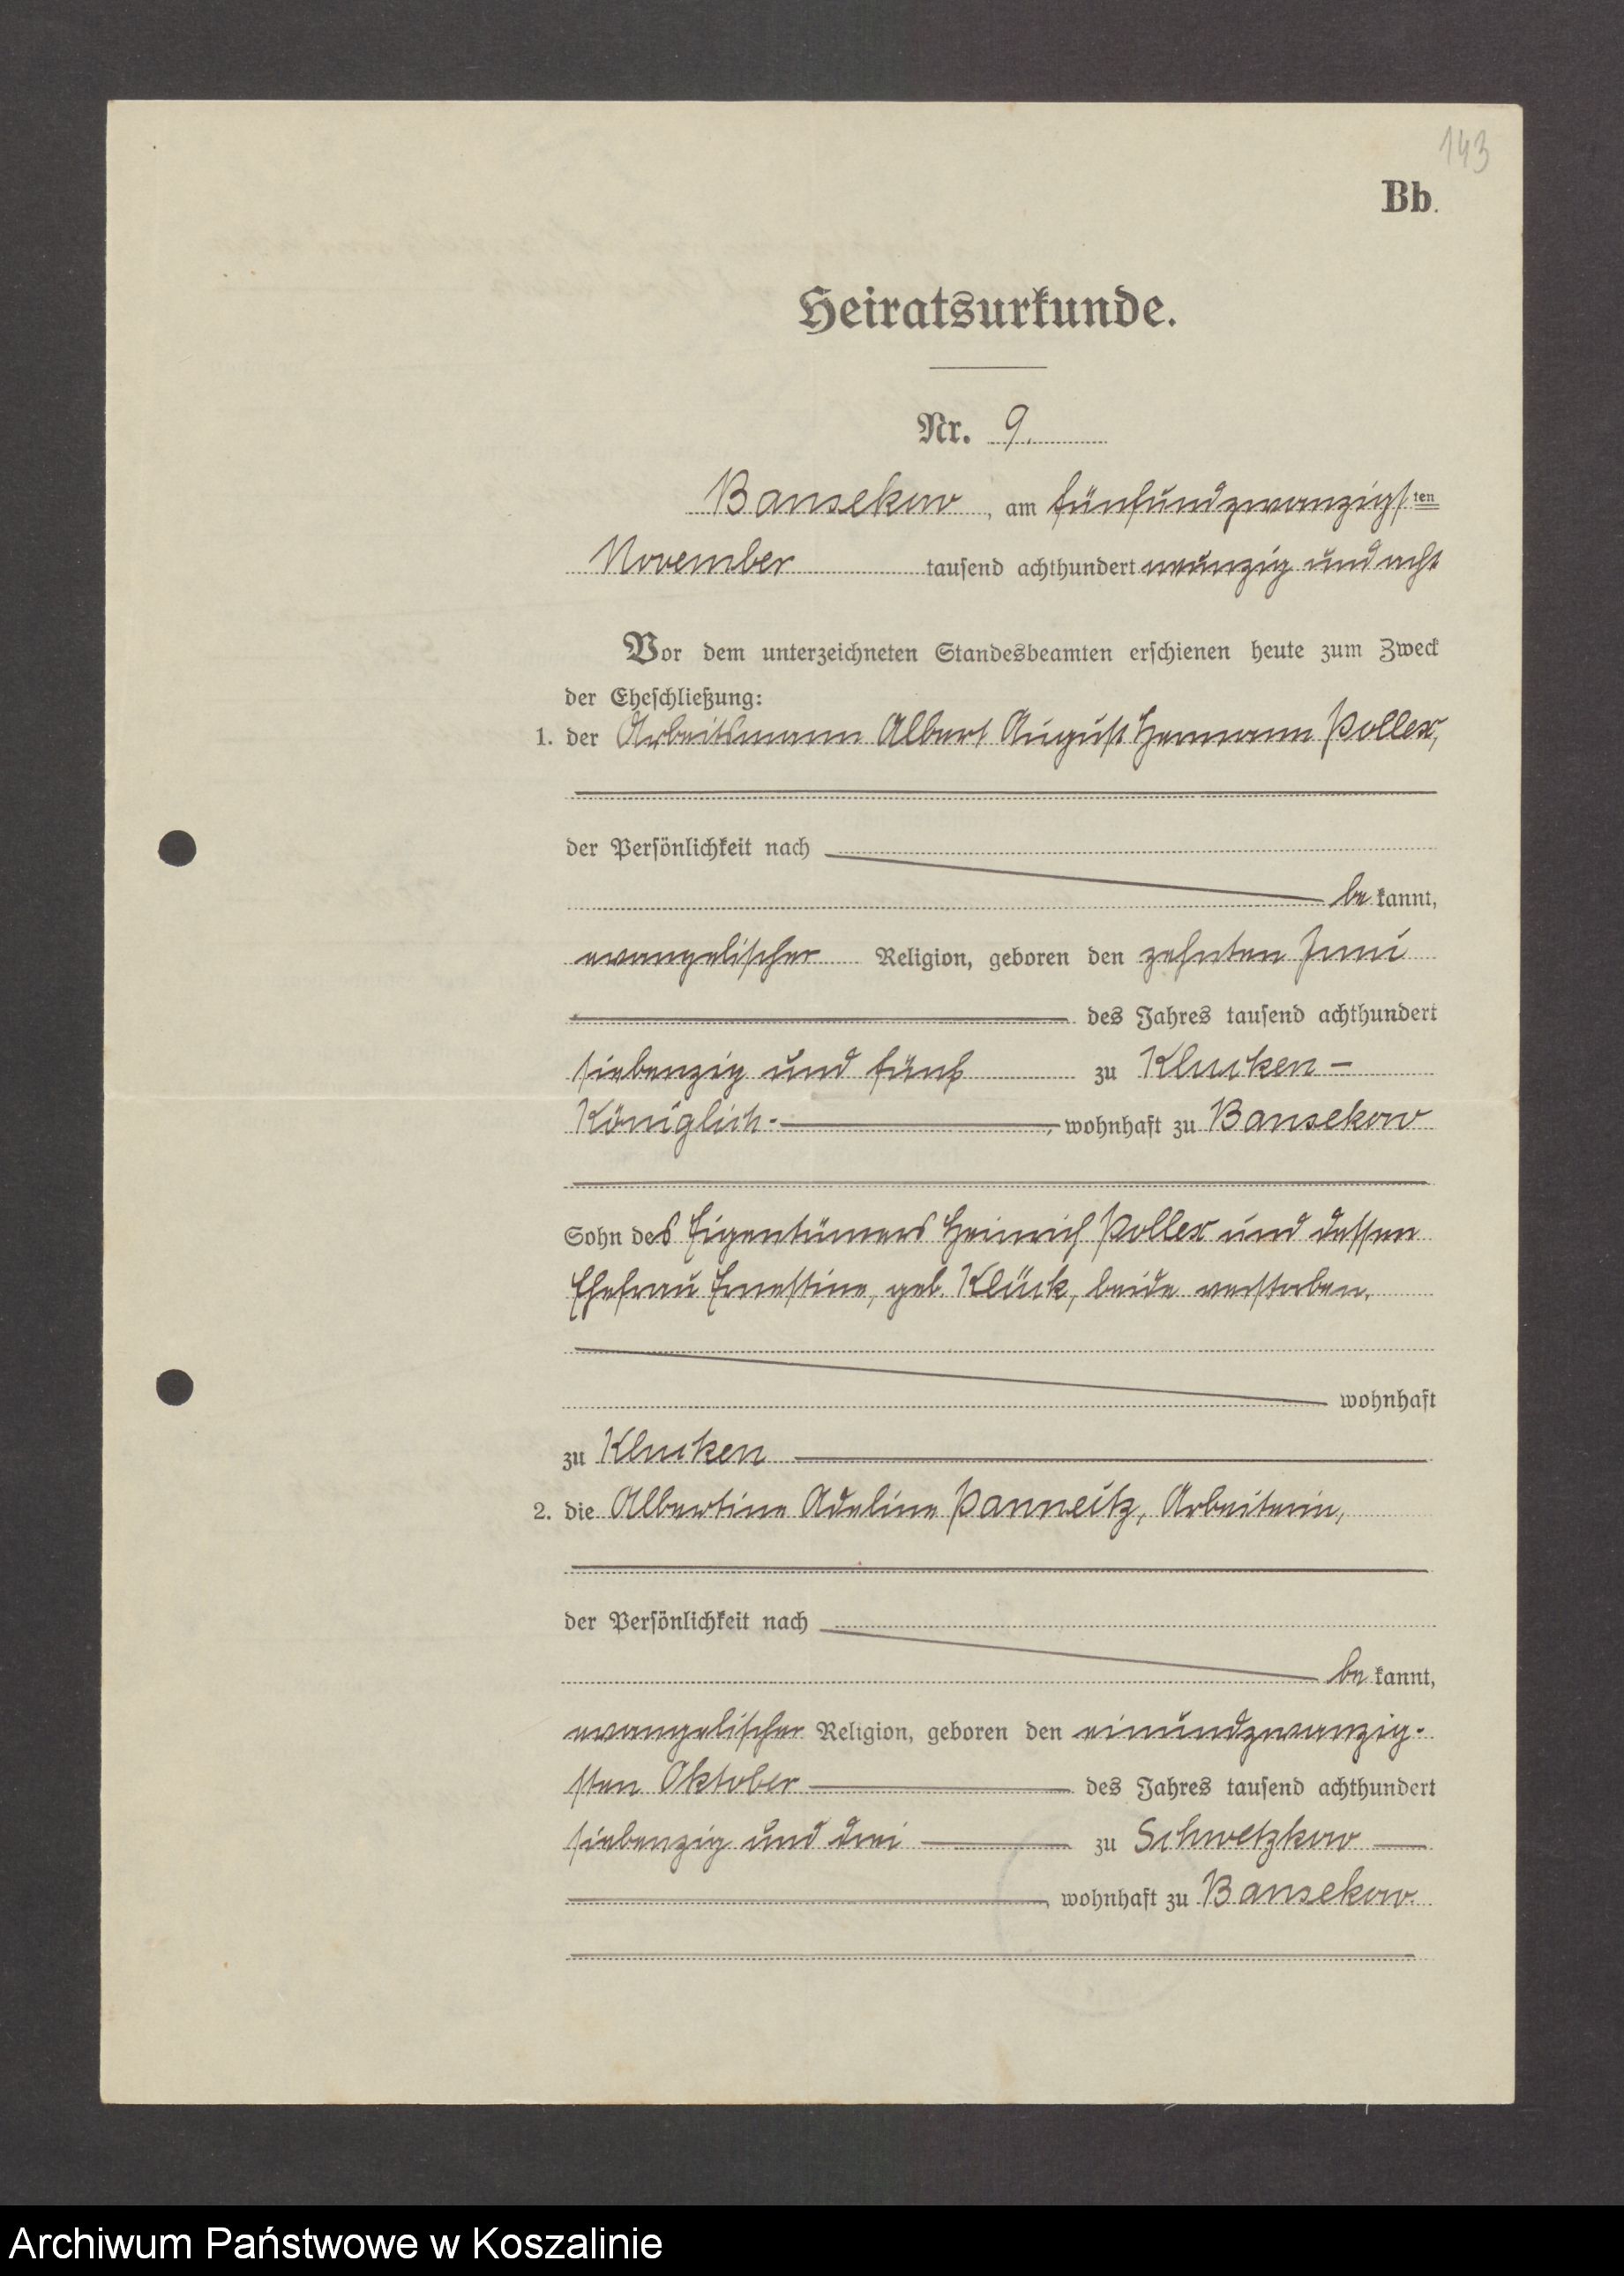 143
Bb.
Heiratsurkunde.
Nr. 9.
Bansekow, am fünfundzwanzigsten
November tausend achthundert neunzig und acht
Vor dem unterzeichneten Standesbeamten erschienen heute zum Zweck
der Eheschließung:
1. der Arbeitsmann Albert August Hermann Pollex,
der Persönlichkeit nach
be kannt,
evangelischer Religion, geboren den zehnten Juni
des Jahres tausend achthundert
siebenzig und fünf zu Klucken-
Königlich-, wohnhaft zu Bansekow
Sohn des Eigentümers Heinrich Pollex und dessen
Ehefrau Ernestine, geb. Klück, beide verstorben,
wohnhaft
zu Klucken
2. die Albertine Adeline Panneitz, Arbeiterin,
der Persönlichkeit nach
be kannt,
evangelischer Religion, geboren den einundzwanzig-
sten Oktober des Jahres tausend achthundert
siebenzig und drei zu Schwetzkow
, wohnhaft zu Bansekow.
Archiwum Państwowe w Koszalinie